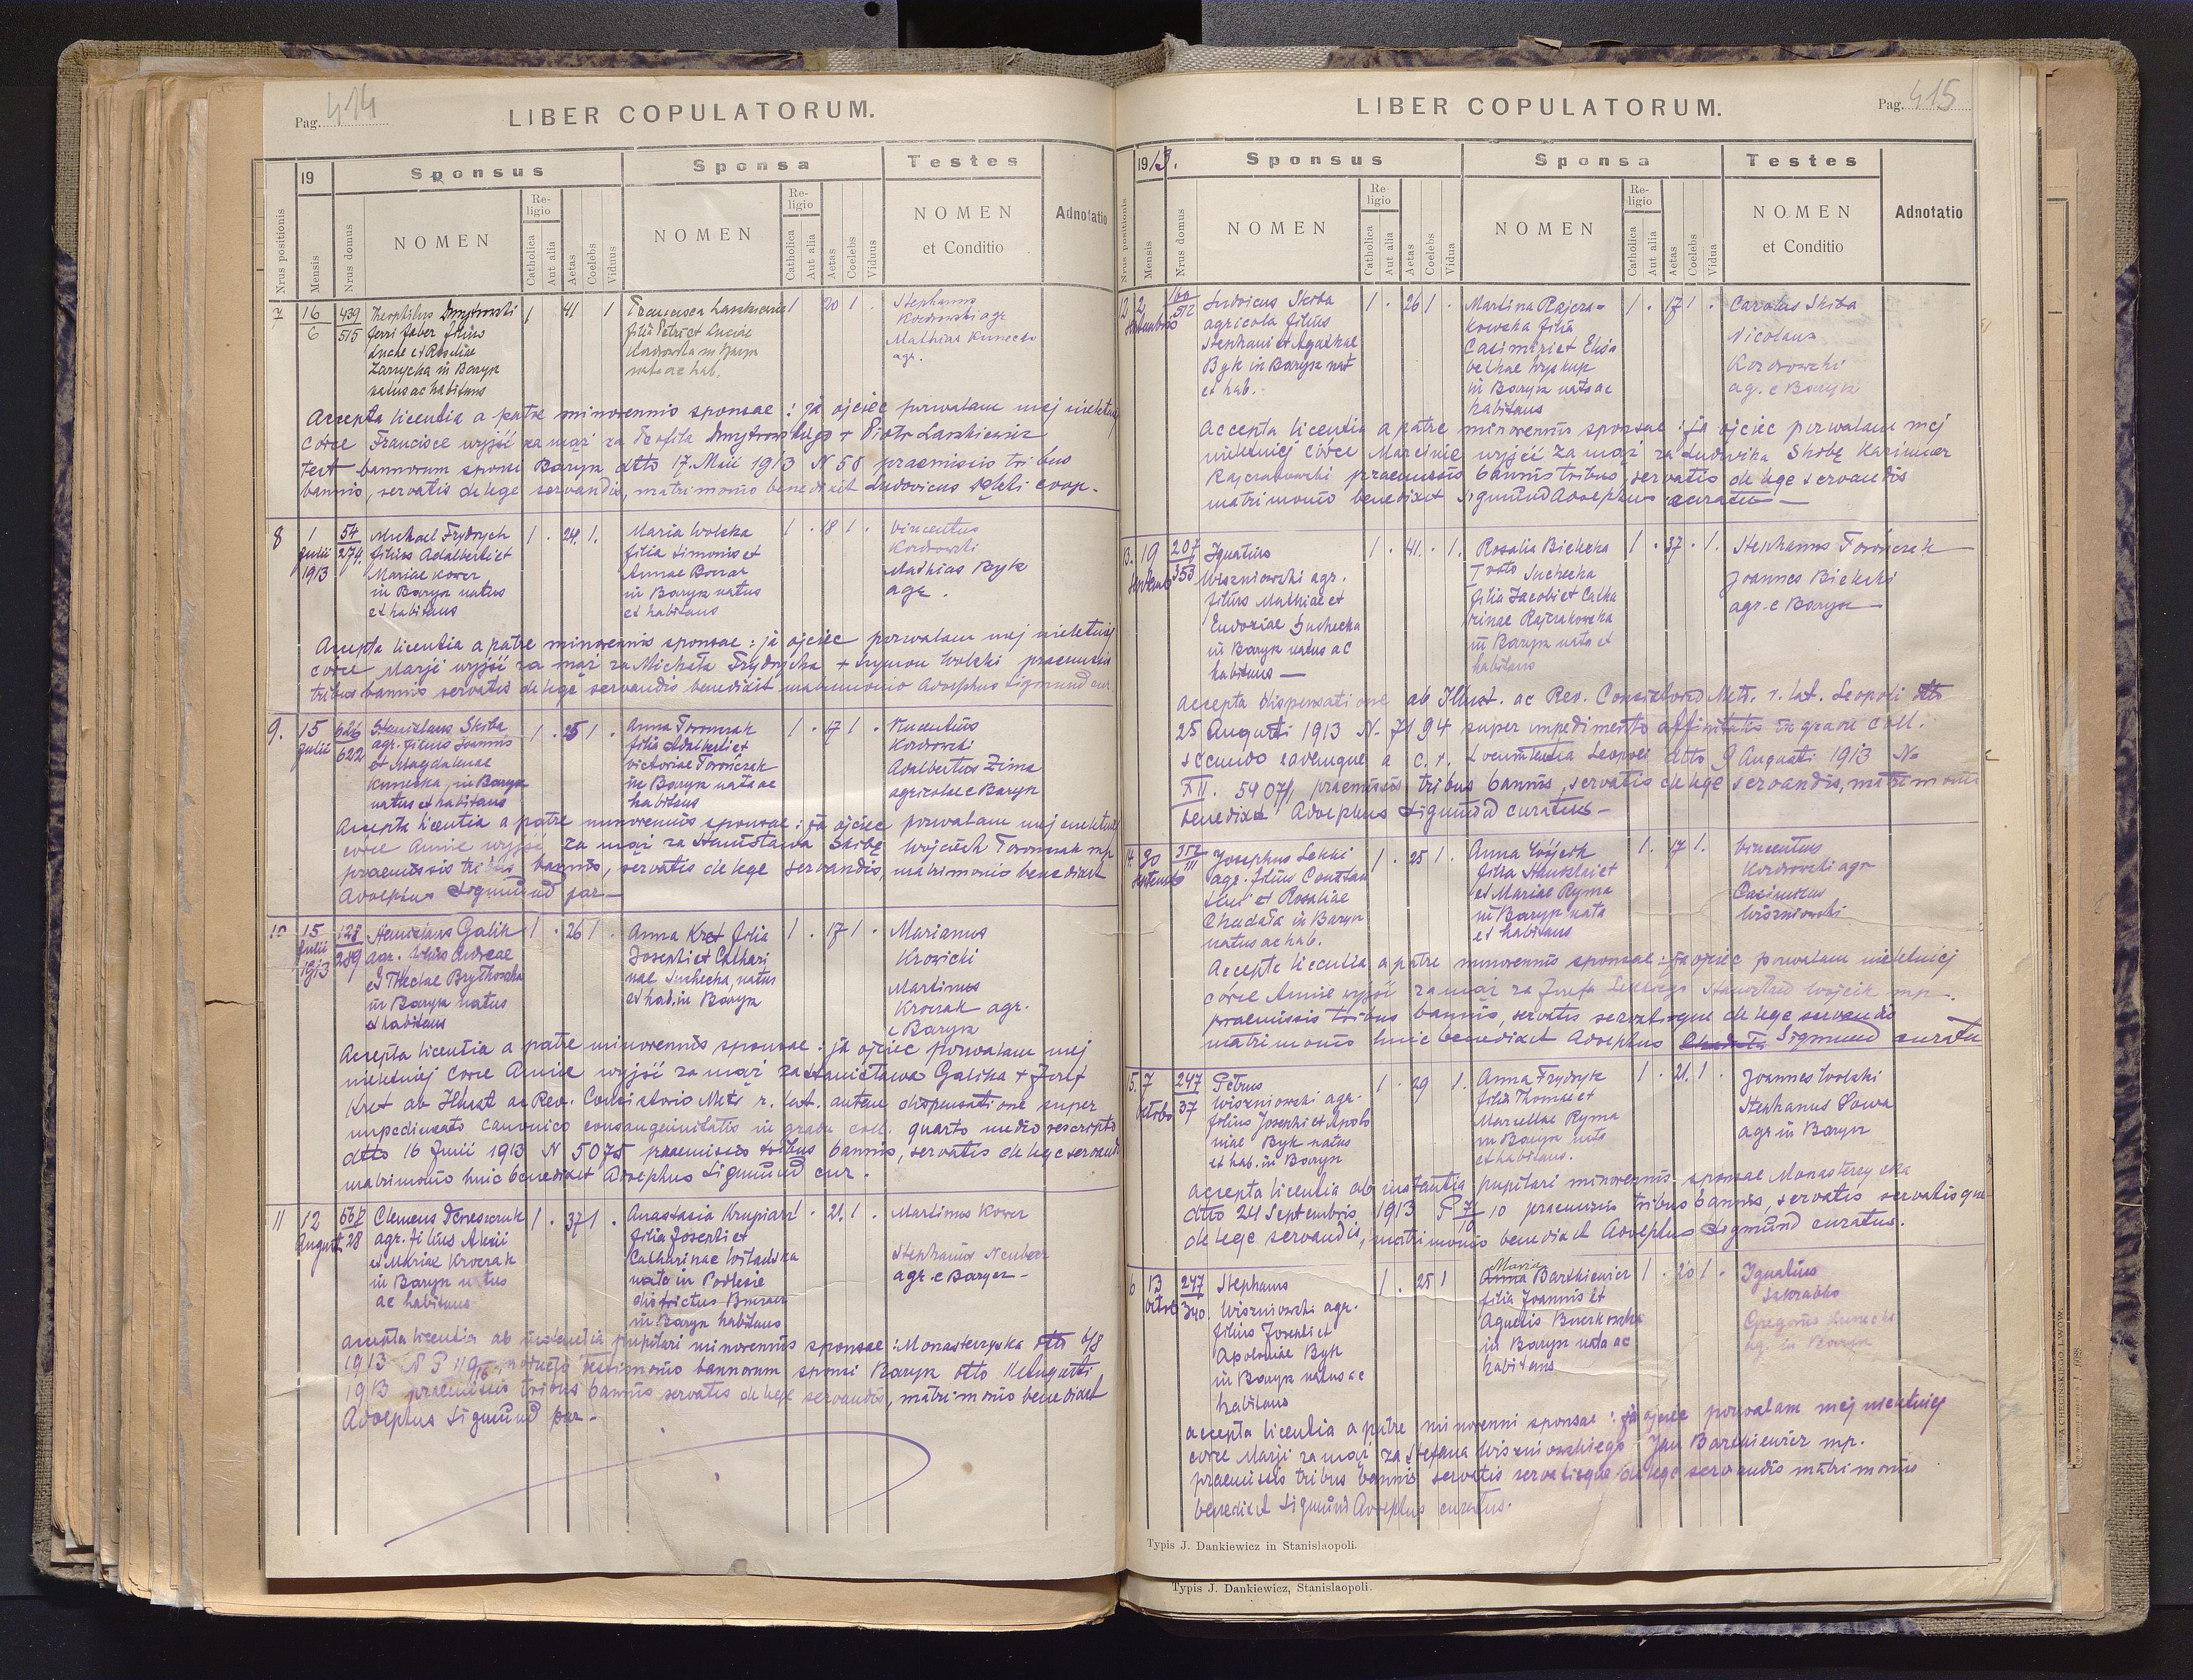 Pag. 414
LIBER COPULATORUM.
19
Sponsus
Sponsa
Testes
Nrus positionis
Mensis
Nrus domus
NOMEN
Religio
Catholica
Aut alia
Aetas
Coelebs
Viduus
NOMEN
Religio
Catholica
Aut alia
Aetas
Coelebs
Vidua
NOMEN
et Conditio
Adnotatio
7
16
6
439
515
Theophilus Dmytrowski
ferri faber filius
Lucae et Rosaliae
Zarzycka in Baryp
natus ac habitans
1
41
1
Francisca Laszkiewicz
filia Petri et Luciae
Kordowska in Baryp
nata ac hab.
1
20
1
Stephanus
Kordowski agr.
Mathias Kunecki
agr.
Accepta licentia a patre minorennis sponsae: ja ojciec pozwalam mej nieletniej
córce Francisce wyjść za mąż za Teofila Dmytrowskiego + Piotr Laszkiewicz
test bannorum sponsi Baryp dtto 17. Maii 1913 N 58 praemissis tribus
bannis, servatis de lege servandis, matrimonio benedixit Ludovicus coop.
8
1
Julii
1913
54
274.
Michael Frydrych
filius Adalberti et
Mariae Kower
in Baryp natus
et habitans
1 . 24. 1.
Maria Wolska
filia Simonis et
Annae
in Baryp natus
et habitans
1 . 18 1 .
Vincentius
Kordowski
Mathias Byk
agr.
Accepta licentia a patre minorennis sponsae: ja ojciec pozwalam mej nieletniej
córce Marji wyjść za mąż za Michała Frydrycha + Szymon Wolski praemissis
tribus bannis servatis de lege servandis benedixit matrimonio Adolphus Sigmund cur.
9.
15
Julii
626
622
Stanislaus Skiba
agr. filius Joannis
et Magdalenae
Kunecka, in Baryp
natus et habitans
1 . 25 1 .
Anna Toronczak
filia Adalberti et
Victoriae Torończak
in Baryp nata ac
habitans
1 . 17 1 .
Vincentius
Kordowski
Adalbertus Zima
agricolae e Baryp
Accepta licentia a patre minorennis sponsae: ja ojciec pozwalam mej nieletniej
córce Annie wyjść za mąż za Stanisława Skibę Wojciech Toronczak mp
praemissis tribus bannis, servatis de lege servandis, matrimonio benedixit
Adolphus Sigmund par.
10
15
Julii
1913
128
289
Stanislaus Galik
agr. filius Andreae
et Theclae
in Baryp natus
et habitans
1 . 26 1 .
Anna Kret filia
Josephi et Cathari
nae Suchecka, natus
et hab. in Baryp
1 . 17 1 .
Marianus
Krowicki
Martinus
Kroczak agr.
e Baryp
Accepta licentia a patre minorennis sponsae: ja ojciec pozwalam mej
nieletniej córce Annie wyjść za mąż za Stanisława Galika + Józef
Kret ab Illust ac Rev. Consistorio Metr. r. lat. autem dispensatione super
impedimento canonico consanguinitatis in gradu coll. quarto medio rescripto
dtto 16 Junii 1913 N 5075 praemissis tribus bannis, servatis de lege servandis
matrimonio huic benedixit Adolphus Sigmund cur.
11
12
August
567
28
Clemens Tereszczuk
agr. filius Alexii
et Mariae Kroczak
in Baryp natus
ac habitans
1 . 37 1 .
Anastasia Krupiarz
filia Josephi et
Catharinae
nata in Podlesie
districtus Buczacz
in Baryp habitans
1 . 21. 1 .
Martinus Kower
Stephanus Neuberr
agr. e Baryp
accepta licentia ab instantia pupilari minorennis sponsae: Monasterzyska dtto 6/8
1913 testimonio bannorum sponsi Baryp dtto 11 Augusti
1913 praemissis tribus bannis servatis de lege servandis, matrimonio benedixit
Adolphus Sigmund par.
LIBER COPULATORUM.
Pag. 415
1913.
Sponsus
Sponsa
Testes
Nrus positionis
Mensis
Nrus domus
NOMEN
Religio
Catholica
Aut alia
Aetas
Coelebs
Vidua
NOMEN
Religio
Catholica
Aut alia
Aetas
Coelebs
Vidua
NOMEN
et Conditio
Adnotatio
12
2
Septembris
512
Ludvicus Skiba
agricola filius
Stephani et Agathae
Byk in Baryp nat
et hab.
1 . 26 1 .
Martina Rajcza-
kowska filia
Casimiri et Elisa
bethae Wyskup
in Baryp nata ac
habitans
1 . 17 1 .
Carolus Skiba
Nicolaus
Kordowski
ag. e Baryp
Accepta licentia a patre minorennis sponsae: ja ojciec pozwalam mej
nieletniej córce Marcinie wyjść za mąż za Ludwika Skibę Kazimierz
Rajczakowski praemissis bannis tribus, servatis de lege servandis
matrimonio benedixit Sigmund Adolphus curatus
13.
19
Septemb
207
353
Ignatius
Wiszniowski agr.
filius Mathiae et
Eudoxiae Suchecka
in Baryp natus ac
habitans
1 . 41 . 1.
Rosalia Bielska
I voto Suchecka
filia Jacobi et Catha
rinae Rajczakowska
in Baryp nata et
habitans
1 . 37 . 1.
Stephanus Torończak
Joannes Bielski
agr. e Baryp
accepta dispensatione ab Illust. ac Rev. Consistorio Metr. r. lat. Leopoli dtto
25 Augusti 1913 N. 7194 super impedimento affinitatis in grade coll.
secundo eademque a c. r. Locumtenentia Leopoli dtto 9 Augusti 1913 No
XII. 5907/1, praemissis tribus bannis, servatis de lege servandis, matrimonio
benedixit Adolphus Sigmund curatus
14
20
Septemb
352
111
Josephus Lekki
agr. filius Constan
tini et Rosaliae
Chudała in Baryp
natus ac hab.
1 . 25 1 .
Anna Wójcik
filia Stanislai et
et Mariae Ryma
in Baryp nata
et habitans
1. 17 1.
Vincentius
Kordowski agr
Casimirus
Wiszniowski
Accepta licentia a patre minorennis sponsae: ja ojciec pozwalam nieletniej
córce Annie wyjść za mąż za Józefa Lekkiego Stanisław Wójcik mp.
praemissis tribus bannis, servatis servatisque de lege servandis
matrimonio huic benedixit Adolphus Sigmund curatus
5.
7
Octobr
247
37
Petrus
Wiszniowski agr.
filius Josephi et Apolo
niae Byk natus
et hab. in Baryp
1 . 29 1.
Anna Frydryk
filia Thomae et
Marcellae Ryma
in Baryp nata
et habitans.
1 . 21. 1 .
Joannes Wolski
Stephanus Sowa
agr. in Baryp
accepta licentia ab instantia pupilari minorennis sponsae Monasterzyska
dtto 24 Septembris 1913 P 7/10 10 praemissis tribus bannis, servatis servatisque
de lege servandis, matrimonio benedixit Adolphus Sigmund curatus.
6
13
Octob
247
340.
Stephanus
Wiszniowski agr.
filius Josephi et
Apoloniae Byk
in Baryp natus ac
habitans
1 . 25 1
Maria
Anna Bartkiewicz
filia Joannis et
Agnetis
in Baryp nata ac
habitans
1 . 20 1 .
Ignatius
Gregorius Kunecki
ag. in Baryp
accepta licentia a patre minorenni sponsae: ja ojciec pozwalam mej nieletniej
córce Marji za mąż za Stefana Wiszniowskiego Jan Bartkiewicz mp.
praemissis tribus bannis servatis servatisque de lege servandis matrimonio
benedixit Sigmund Adolphus curatus.
Typis J. Dankiewicz in Stanislaopoli.
Typis J. Dankiewicz, Stanislaopoli.